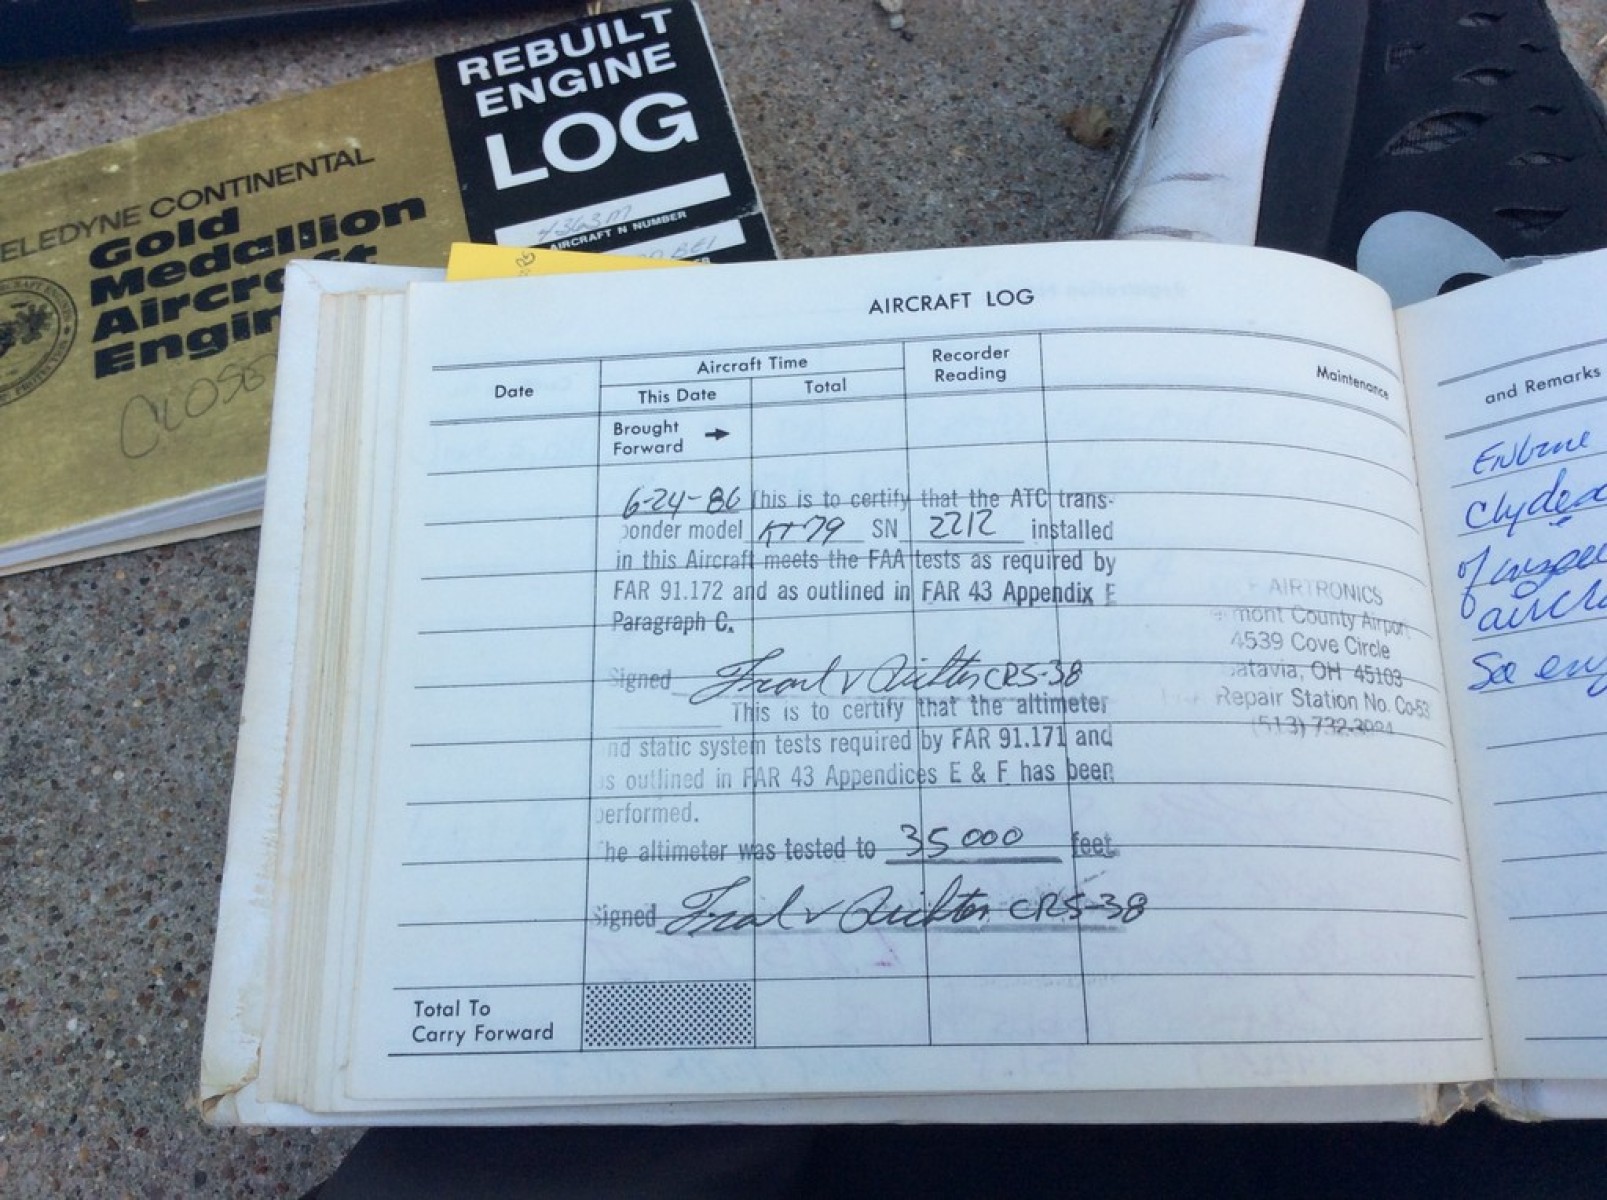 REBUILT
ENGINE
LOG
TELEDYNE CONTINENTAL
Gold
Medallion
Aircraft
Engin
4363M
AIRCRAFT N NUMBER
AIRCRAFT LOG
Date
Aircraft Time
This Date
Total
Recorder
Reading
Maintenance
and Remarks
Brought
Forward
6-24-86 This is to certify that the ATC trans-
ponder model KT79 SN 2212 installed
in this Aircraft meets the FAA tests as required by
FAR 91.172 and as outlined in FAR 43 Appendix E
Paragraph C.
Signed CRS-38
This is to certify that the altimeter
nd static system tests required by FAR 91.171 and
as outlined in FAR 43 Appendices E & F has been
performed.
The altimeter was tested to 35000 feet.
Signed CRS-38
AIRTRONICS
mont County Airport
4539 Cove Circle
Batavia, OH 45103
Repair Station No. Co-53
(513) 732-3024
Total To
Carry Forward
of
So eng